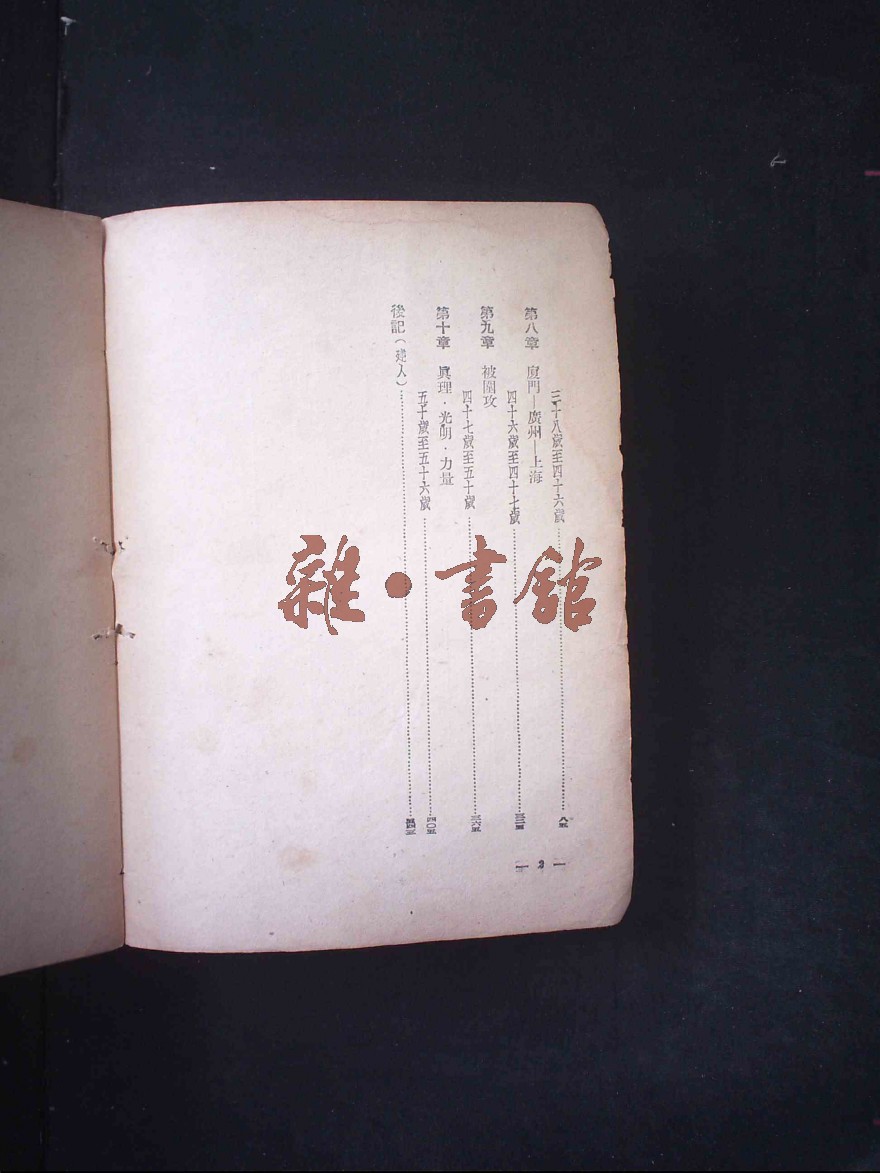 三十八歲至四十六歲……八五
第八章 廈門—廣州—上海
四十六歲至四十七歲……
第九章 被圍攻
四十七歲至五十歲……
第十章 眞理・光明・力量
五十歲至五十六歲……四〇五
後記(建人)……
— 2 —
雜・書館